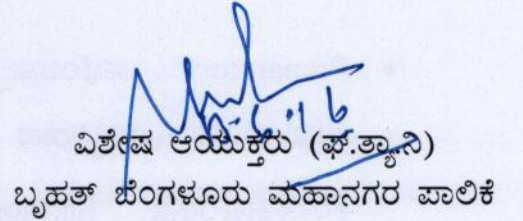 ವಿಶೇಷ ಆಯುಕ್ತರು (ಘ.ತ್ಯಾ.ನಿ)
ಬೃಹತ್ ಬೆಂಗಳೂರು ಮಹಾನಗರ ಪಾಲಿಕೆ